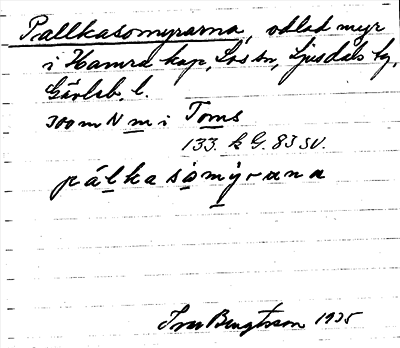 Pallkasomyrarna, odlad myr
i Hamra kap, Los sn, Ljusdals tg,
Gävleb. l.
300 m N m i Toms
133. k G. 83 SV.
pálkasomýrana
Ivar Bengtsson 1935